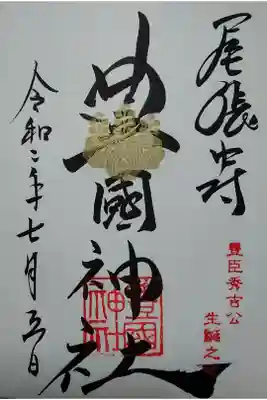 尾張中村
豊臣秀吉公
生誕之
豊國神社
豊國
神社
令和二年七月五日